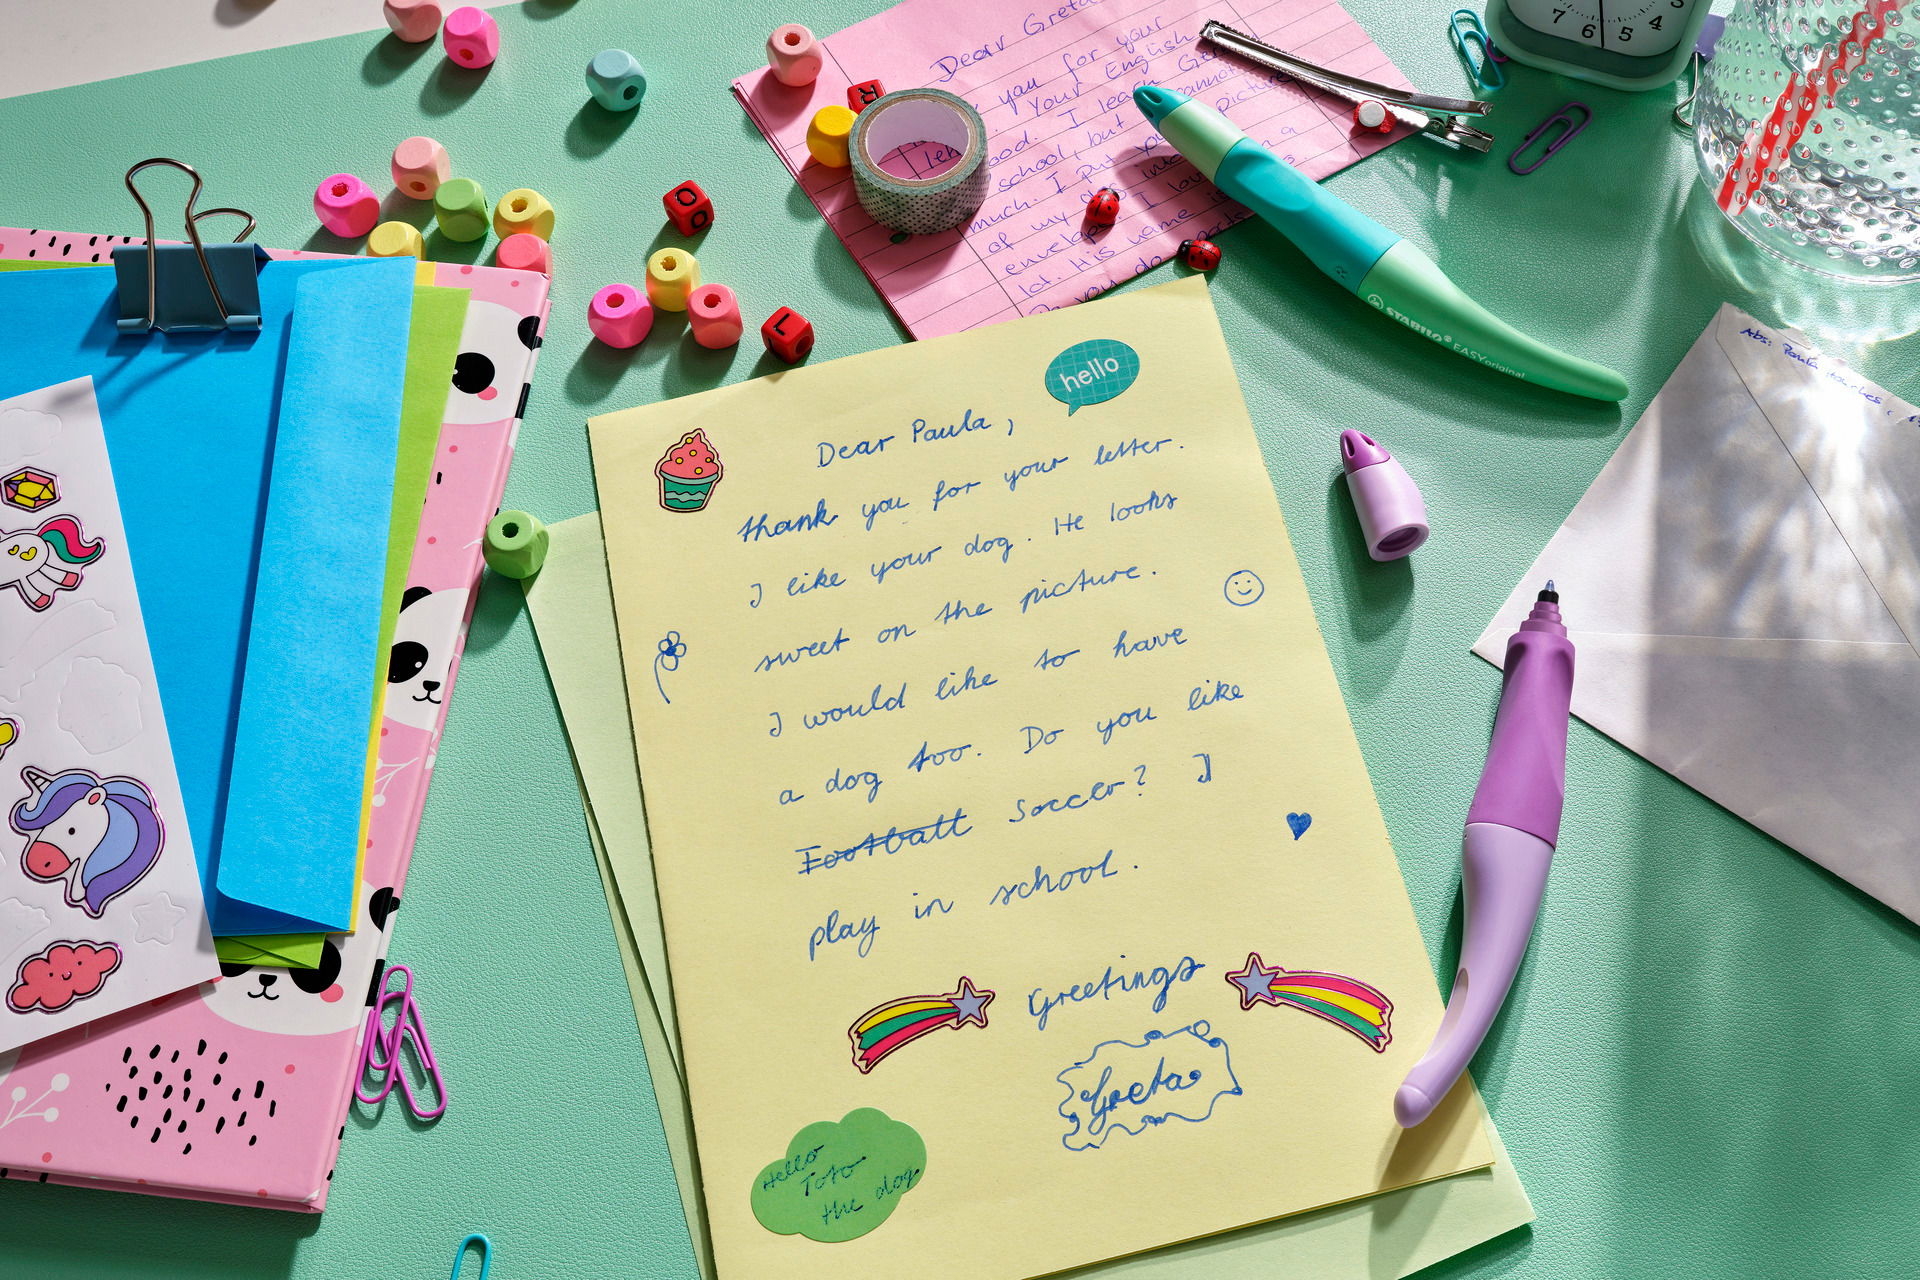 Dear Greta
you for your
Your English
ood. I learn Ger
school, but cannot
much. I put you
picture
of my dog into a
envelope. I lov
lot. His name is
you do
R
O
L
7 6 5 4
STABILO® EASYoriginal
Abs: Paula
hello
Dear Paula,
thank you for your letter.
I like your dog. He looks
sweet on the picture.
I would like to have
a dog too. Do you like
Football Soccer? I
play in school.
Greetings
Greta
Hello
Toto
the dog